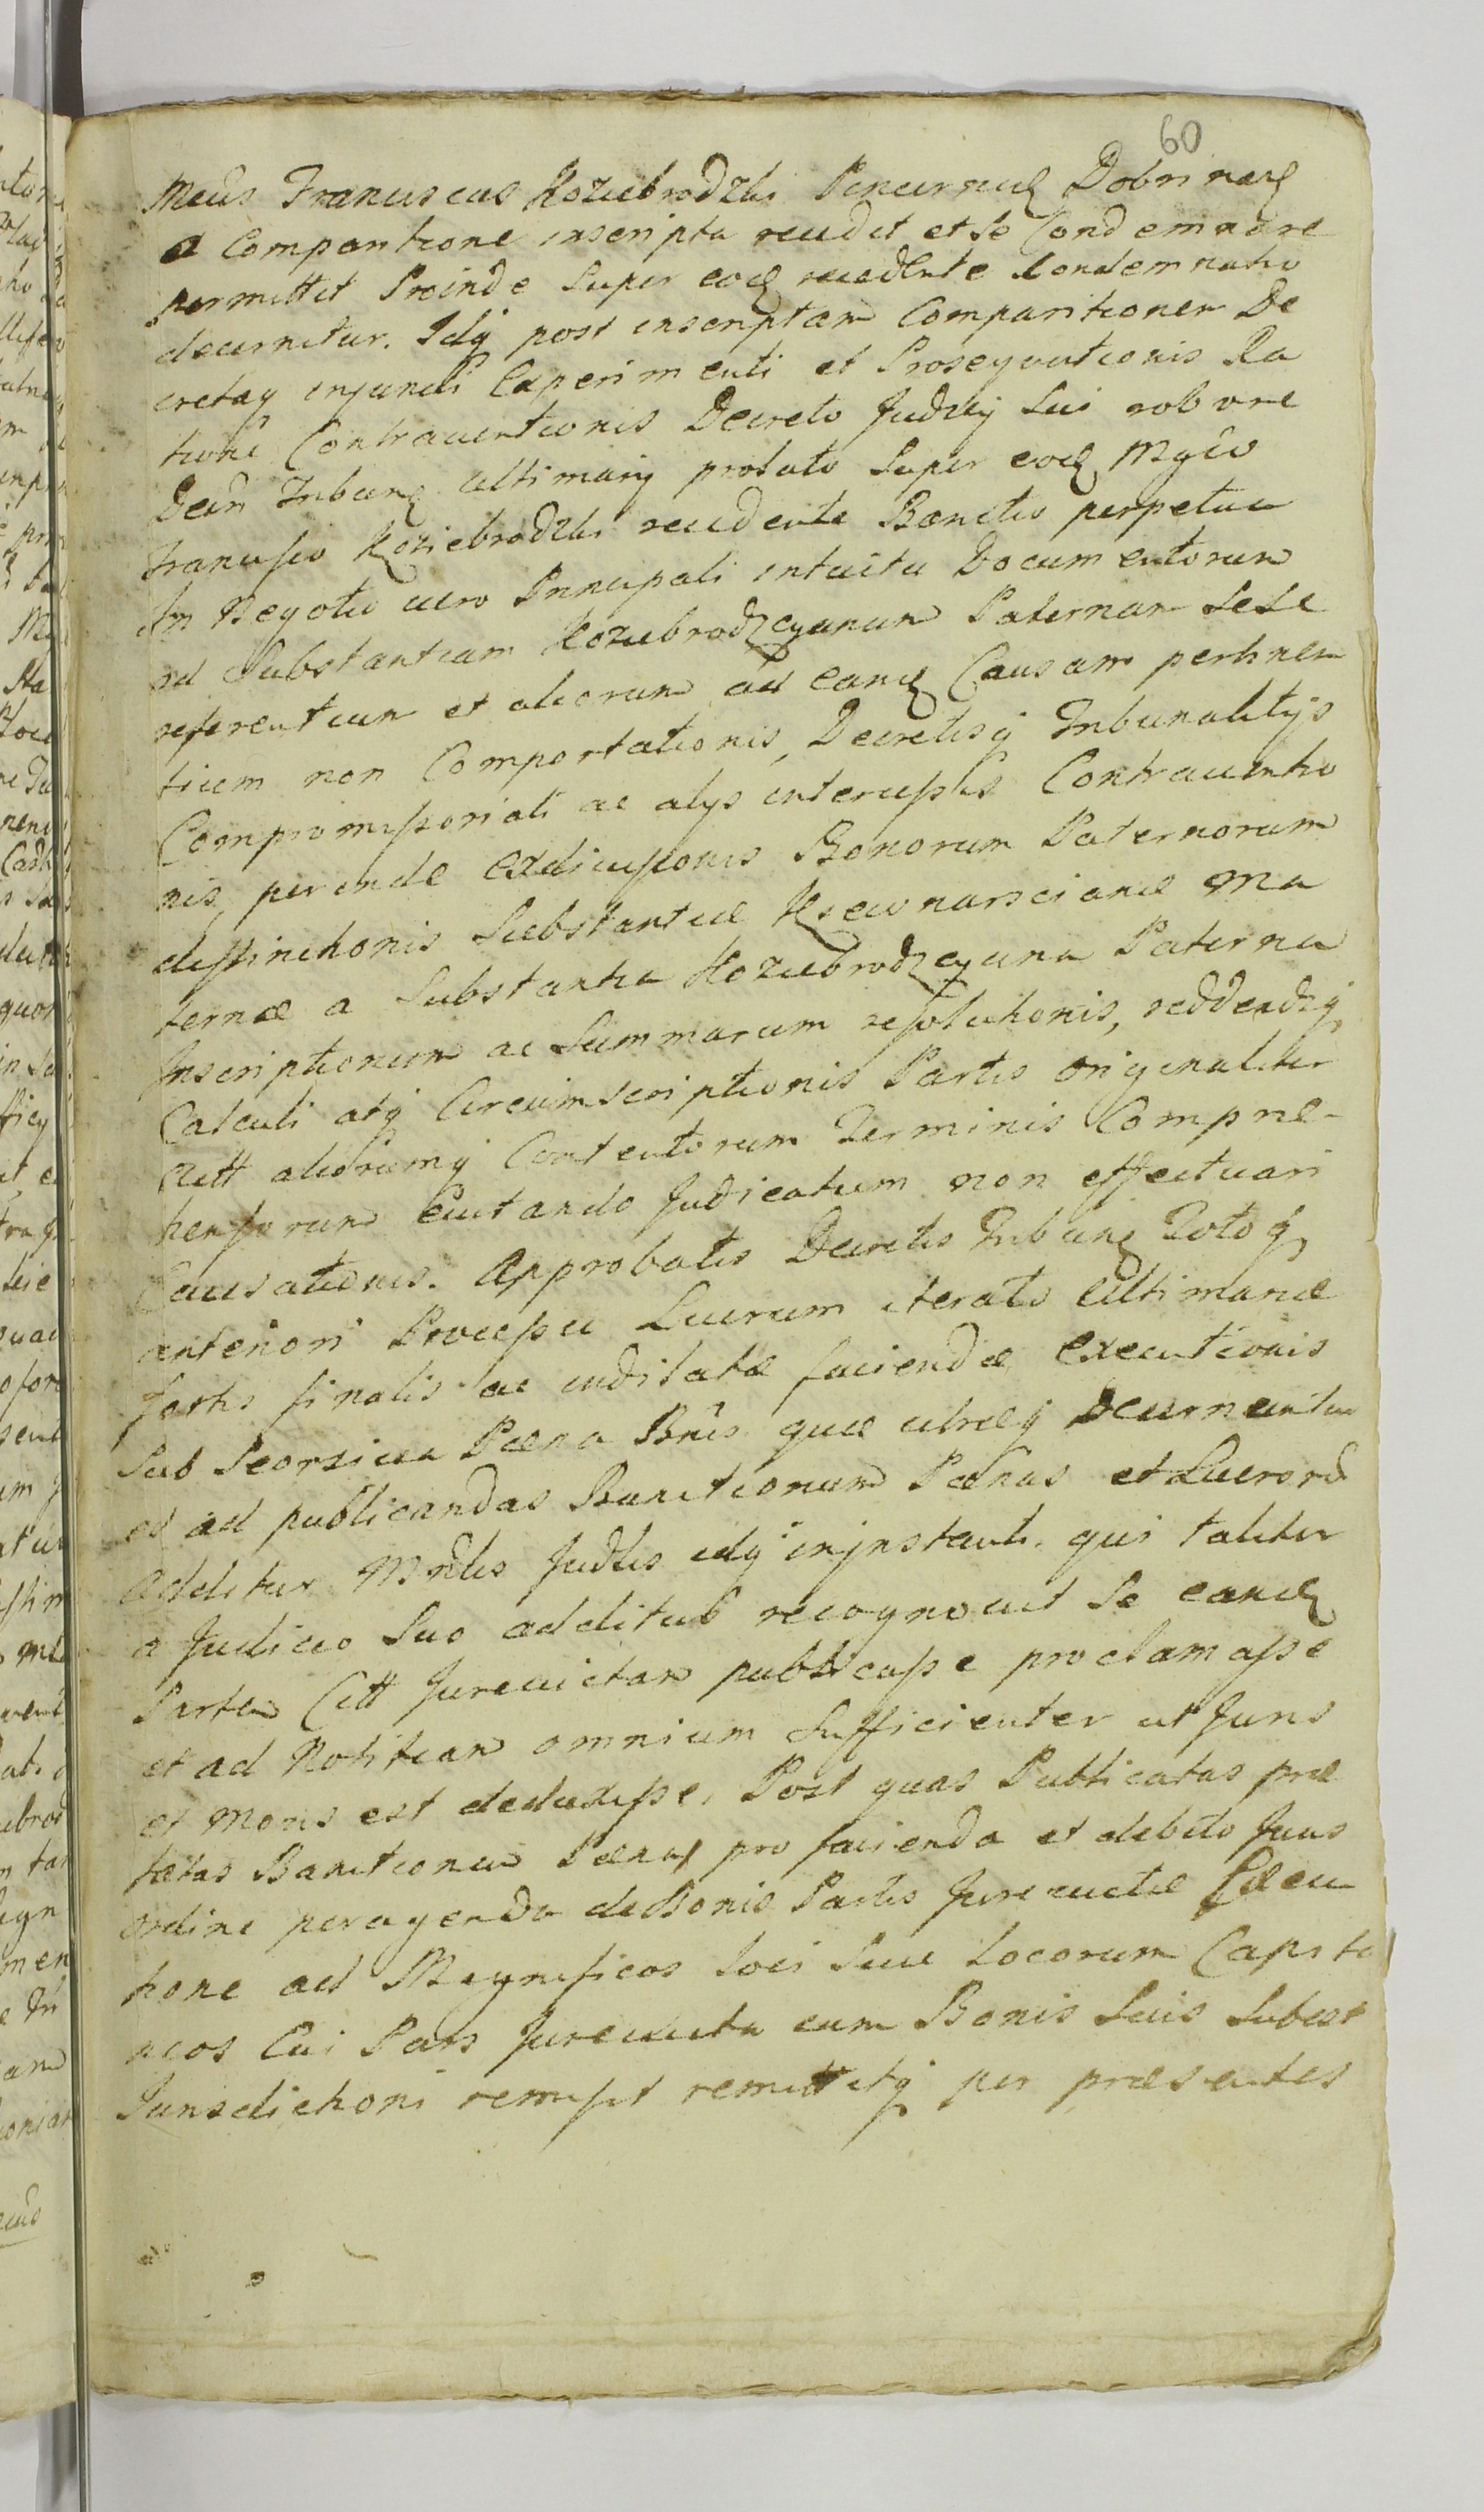 60
Mcus Franciscus Koziebrodzki Pincernae Dobrinens
a Comparitione inscripta recedit et se Condemnare
permittit Proinde super eode recedente Condemnatio
decernitur. Idq post inscriptam Comparitionem De
cretaq injuncti Experimenti et Prosequutionis Ra
tione Contraventionis Decreto Judicij sui robore
Decri Tribunae ultimarij probato super eode Mgco
Francisco Koziebrodzki recedente Bannitio perpetua
In Negotio vero Principali intuitu Documentorum
ad Substantiam Koziebrodzcyanam Paternam sese
referentium et aliorum ad eande Causam pertinen
tium non Comportationis, Decretisq Tribunalitijs
Compromissoriali ac alijs intercissis Contraventio
nis, perinde exdivisionis Bonorum Paternorum
distinctionis Substantiae Maternae Ma
ternae a Substantia Koziebrodzcyana Paterna
Inscriptionum ac Summarum resolutionis, reddendiq
Calculi atq Circumscriptionis Partis originaliter
Citt aliorumq Contentorum Terminis Compre-
hensorum evitando Judicatum non effectuari
Causationis. Approbatis Decretis Tribunae Totoq
anteriori Processu Lucrum iterato Ultimariae
fortis finalis ac inditatae faciendae executionis
Sub Seorsiva Poena Bnis quae utraeq Decernuntur
et ad publicandas Bannitionum Poenas et Lucrord
additur Mrlis Judtis idq in instanti. qui taliter
a Judicio Suo additus recognovit se eande
Partem Citt Jurevictam publicasse proclamasse
et ad Notitiam omnium Sufficienter ut Juris
et Moris est deduxisse, Post quas Publicatas prae
fatas Bannitionum Poenas pro facienda et debito Juris
ordine peragenda de Bonis Partis Jurevictae Execu
tione ad Magnificos loci Sive Locorum Capita
neos Cui Pars Jurevicta cum Bonis Suis Subest
Jurisdictioni remisit remittitq per praesentes